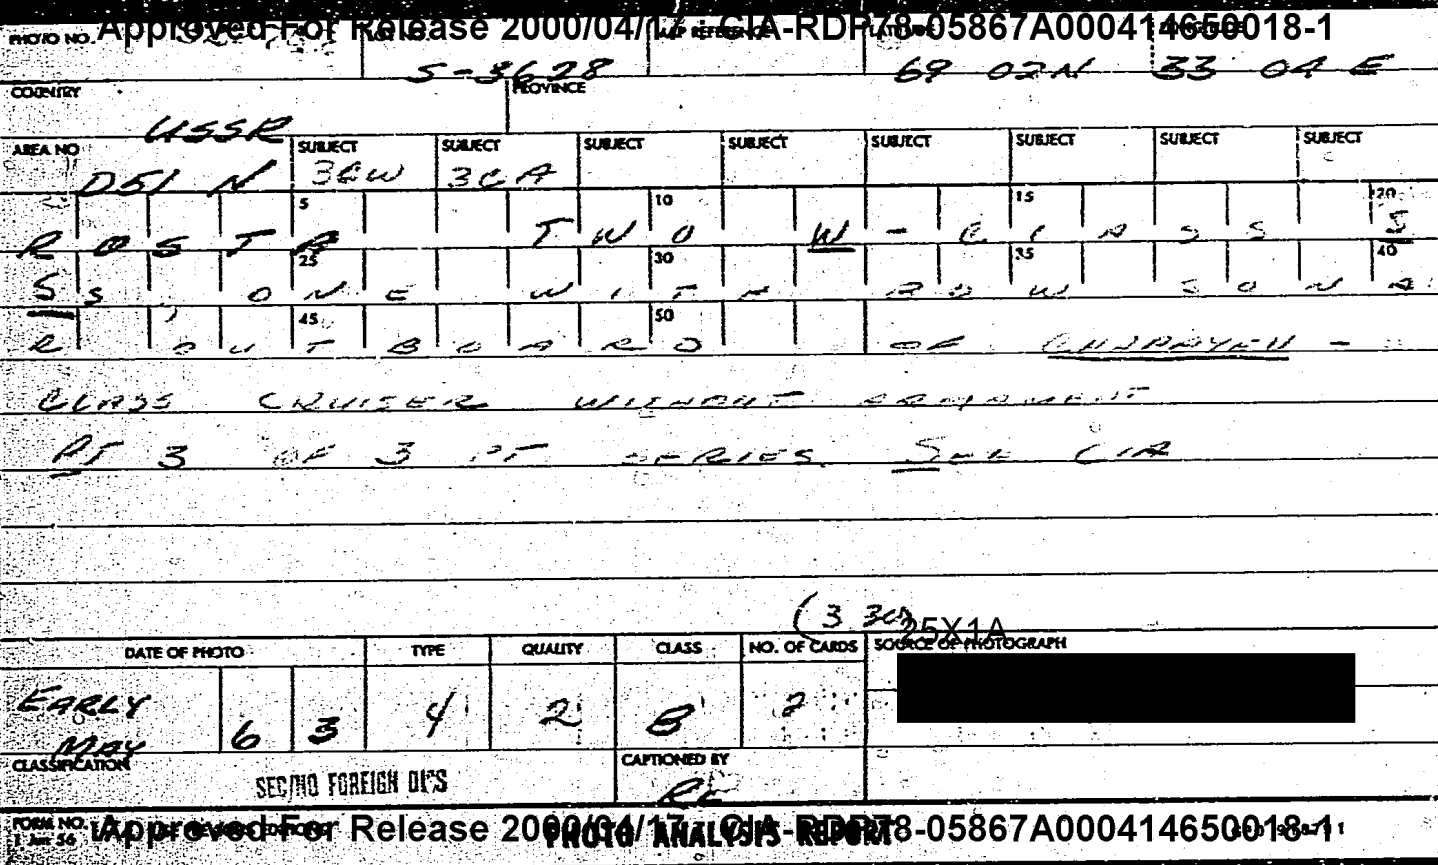 Approved For Release 2000/04/17 : CIA-RDP78-05867A000414650018-1
PHOTO NO. MAP REFERENCE
S-3628 69 02N 33 04 E
COUNTRY PROVINCE
USSR
AREA NO SUBJECT SUBJECT SUBJECT SUBJECT SUBJECT SUBJECT SUBJECT SUBJECT
D51 N 3CW 3CA
5 10 15 20
ROSTA TWO W-CLASS S
25 30 35 40
SS, ONE WITH BOW SONA
45 50
R OUTBOARD OF CHAPAYEV-
CLASS CRUISER WITHOUT ARMAMENT
PT 3 OF 3 PT SERIES. SEE CIA
(3 3CW
25X1A
DATE OF PHOTO TYPE QUALITY CLASS NO. OF CARDS SOURCE OF PHOTOGRAPH
EARLY MAY 6 3 4 2 B 2
CLASSIFICATION CAPTIONED BY
SEC/NO FOREIGN DISS
FORM NO.
1 JAN 56
PHOTO ANALYSIS REPORT
Approved For Release 2000/04/17 : CIA-RDP78-05867A000414650018-1